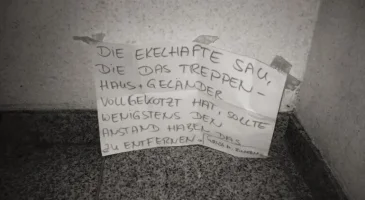 DIE EKELHAFTE SAU,
DIE DAS TREPPEN-
HAUS + GELÄNDER
VOLLGEKOTZT HAT, SOLLTE
WENIGSTENS DEN
ANSTAND HABEN DAS
ZU ENTFERNEN.